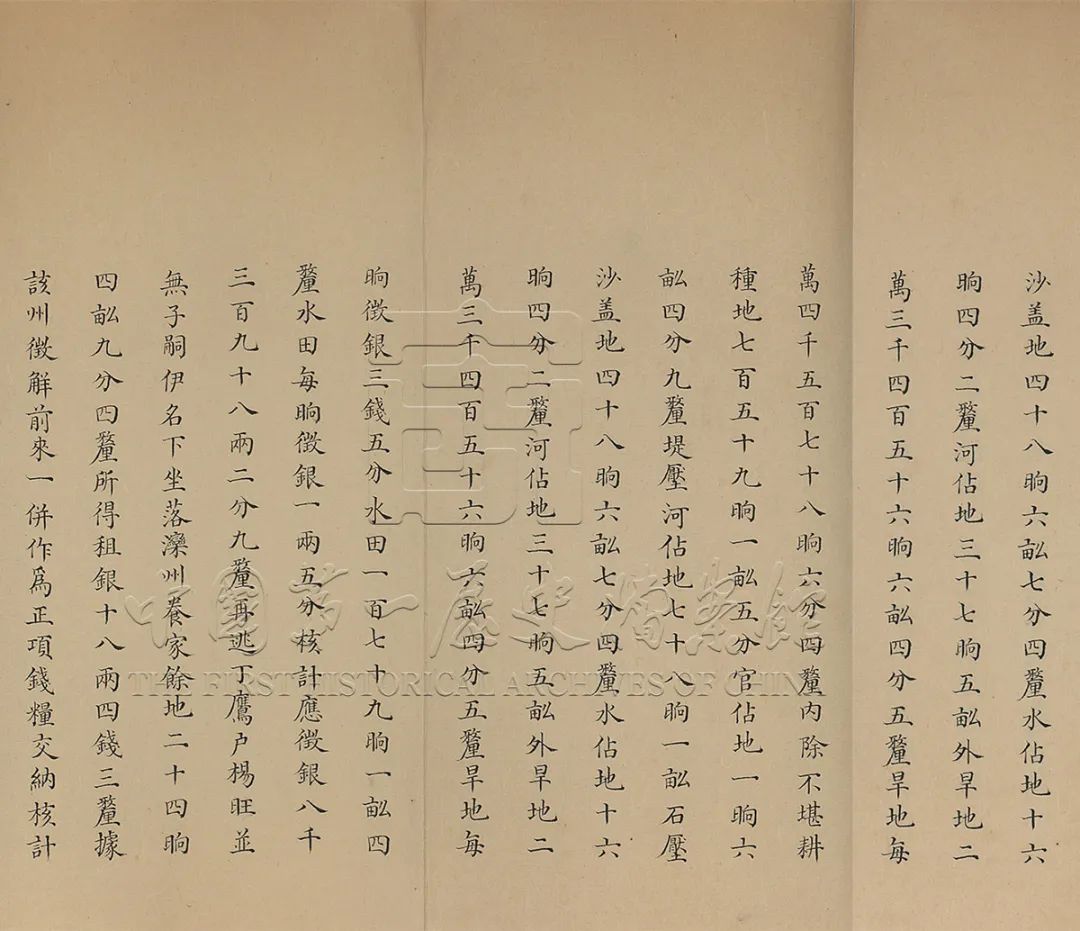 沙盖地四十八晌六畝七分四釐水佔地十六
晌四分二釐河佔地三十七晌五畝外旱地二
萬三千四百五十六晌六畝四分五釐旱地每
萬四千五百七十八晌六分四釐内除不堪耕
種地七百五十九晌一畝五分官佔地一晌六
畝四分九釐堤壓河佔地七十八晌一畝石壓
沙盖地四十八晌六畝七分四釐水佔地十六
晌四分二釐河佔地三十七晌五畝外旱地二
萬三千四百五十六晌六畝四分五釐旱地每
晌徵銀三錢五分水田一百七十九晌一畝四
釐水田每晌徵銀一兩五分核計應徵銀八千
三百九十八兩二分九釐再逃丁鷹户楊旺並
無子嗣伊名下坐落灤州養家餘地二十四晌
四畝九分四釐所得租銀十八兩四錢三釐據
該州徵解前來一併作爲正項錢糧交納核計
中國第一歷史檔案館
THE FIRST HISTORICAL ARCHIVES OF CHINA